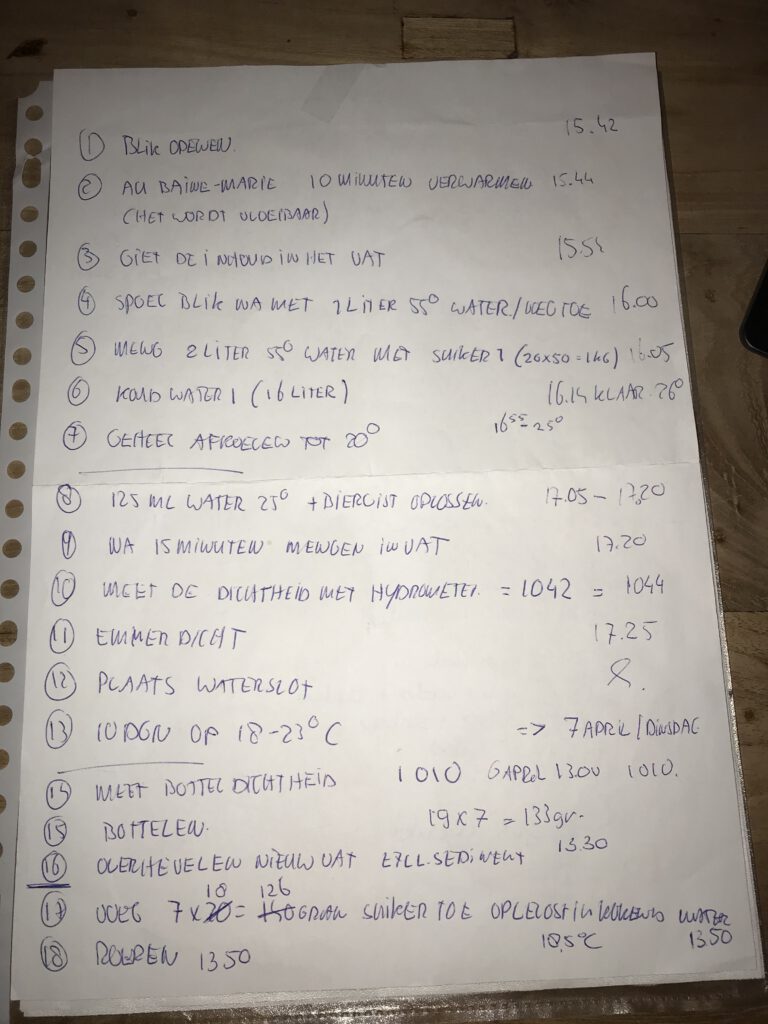 ① BLIK OPENEN. 15.42
② AU BAINE-MARIE 10 MINUTEN VERWARMEN 15.44
(HET WORDT VLOEIBAAR)
③ GIET DE INHOUD IN HET VAT 15.54
④ SPOEL BLIK NA MET 1 LITER 55° WATER/VOEG TOE 16.00
⑤ MENG 2 LITER 55° WATER MET SUIKER (20x50=1KG) 16.05
⑥ KOUD WATER (16 LITER) 16.14 KLAAR 26°
⑦ GEHEEL AFKOELEN TOT 20° 16⁵⁵ = 25°
⑧ 125 ML WATER 25° + BIERGIST OPLOSSEN. 17.05 - 17.20
⑨ NA 15 MINUTEN MENGEN IN VAT 17.20
⑩ MEET DE DICHTHEID MET HYDROMETER. = 1042 = 1044
⑪ EMMER DICHT 17.25
⑫ PLAATS WATERSLOT
⑬ 10 DGN OP 18-23°C => 7 APRIL/DINSDAG
MEET BOTTELDICHTHEID 1010 6 APRIL 13.00 1010.
⑮ BOTTELEN. 19x7 = 133gr.
⑯ OVERHEVELEN NIEUW VAT EXCL. SEDIMENT 13.30
18 126
⑰ VOEG 7 x 20 = 140 GRAM SUIKER TOE OPGELOST IN KOKEND WATER
⑱ ROEREN 13.50 18,5°C 13.50